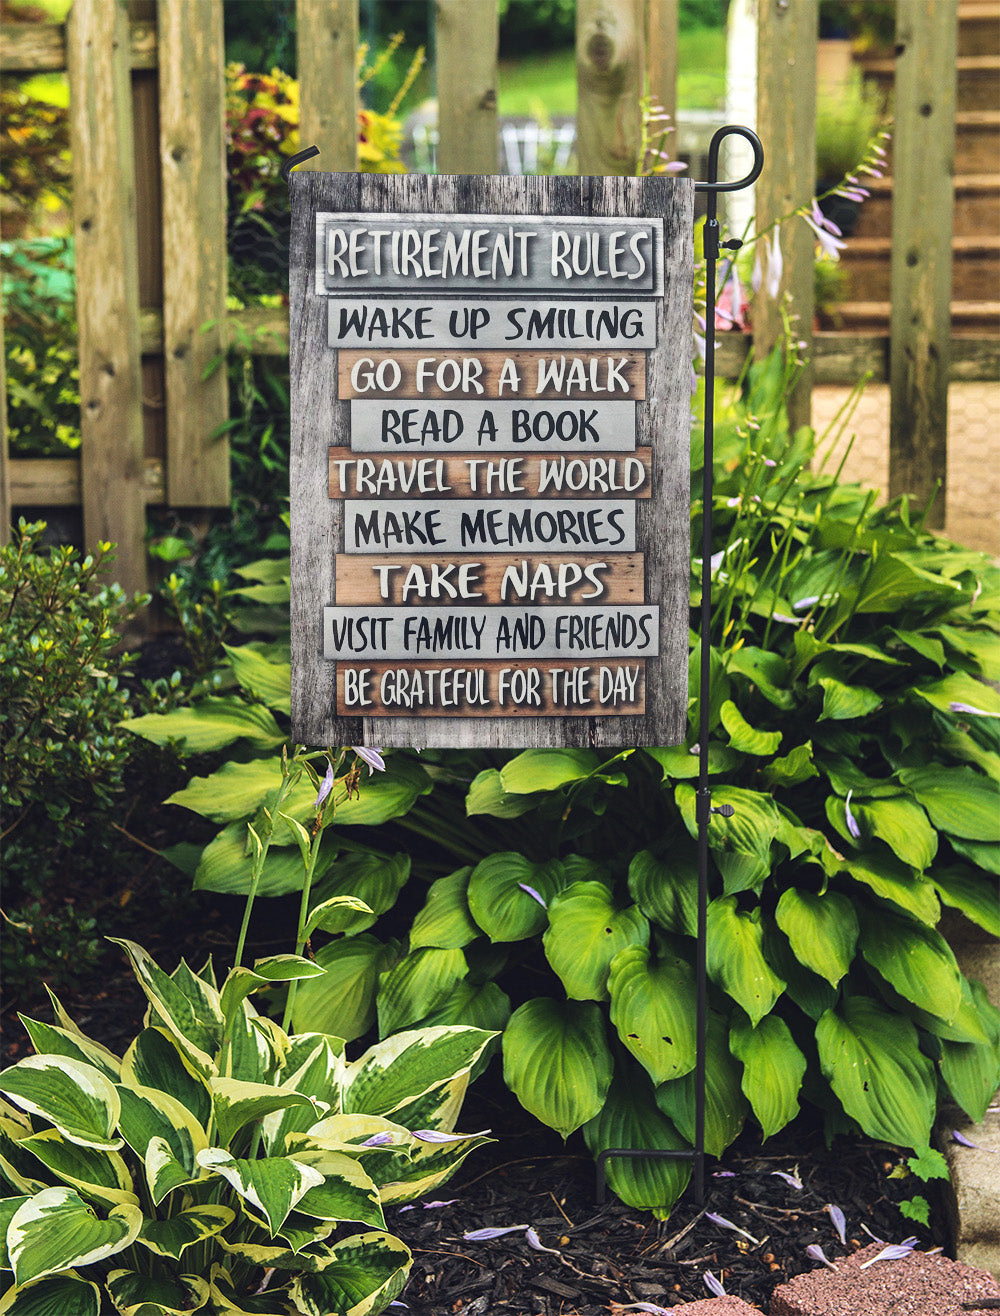 RETIREMENT RULES
WAKE UP SMILING
GO FOR A WALK
READ A BOOK
TRAVEL THE WORLD
MAKE MEMORIES
TAKE NAPS
VISIT FAMILY AND FRIENDS
BE GRATEFUL FOR THE DAY